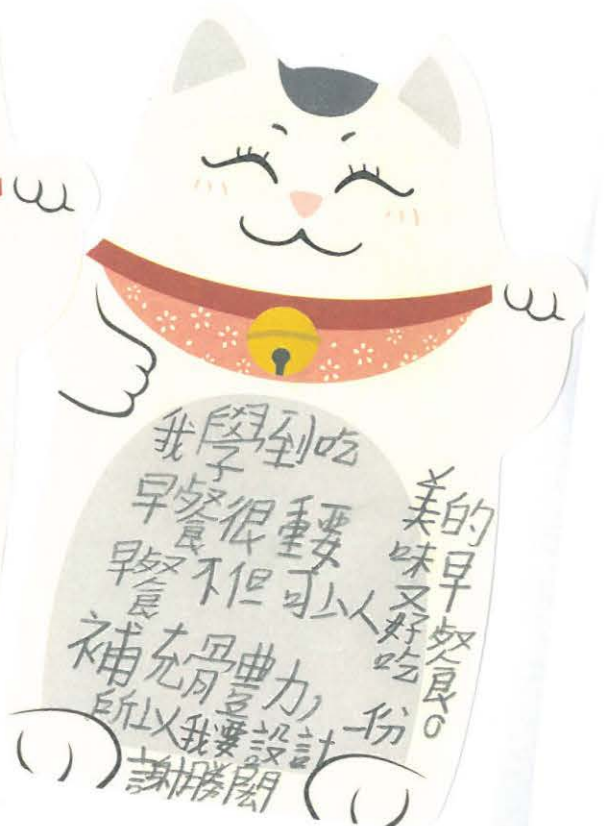 我學到吃
早餐很重要
早餐不但可以
補充體力,
所以我要設計一份
美味又好吃
的早餐。
謝勝閎